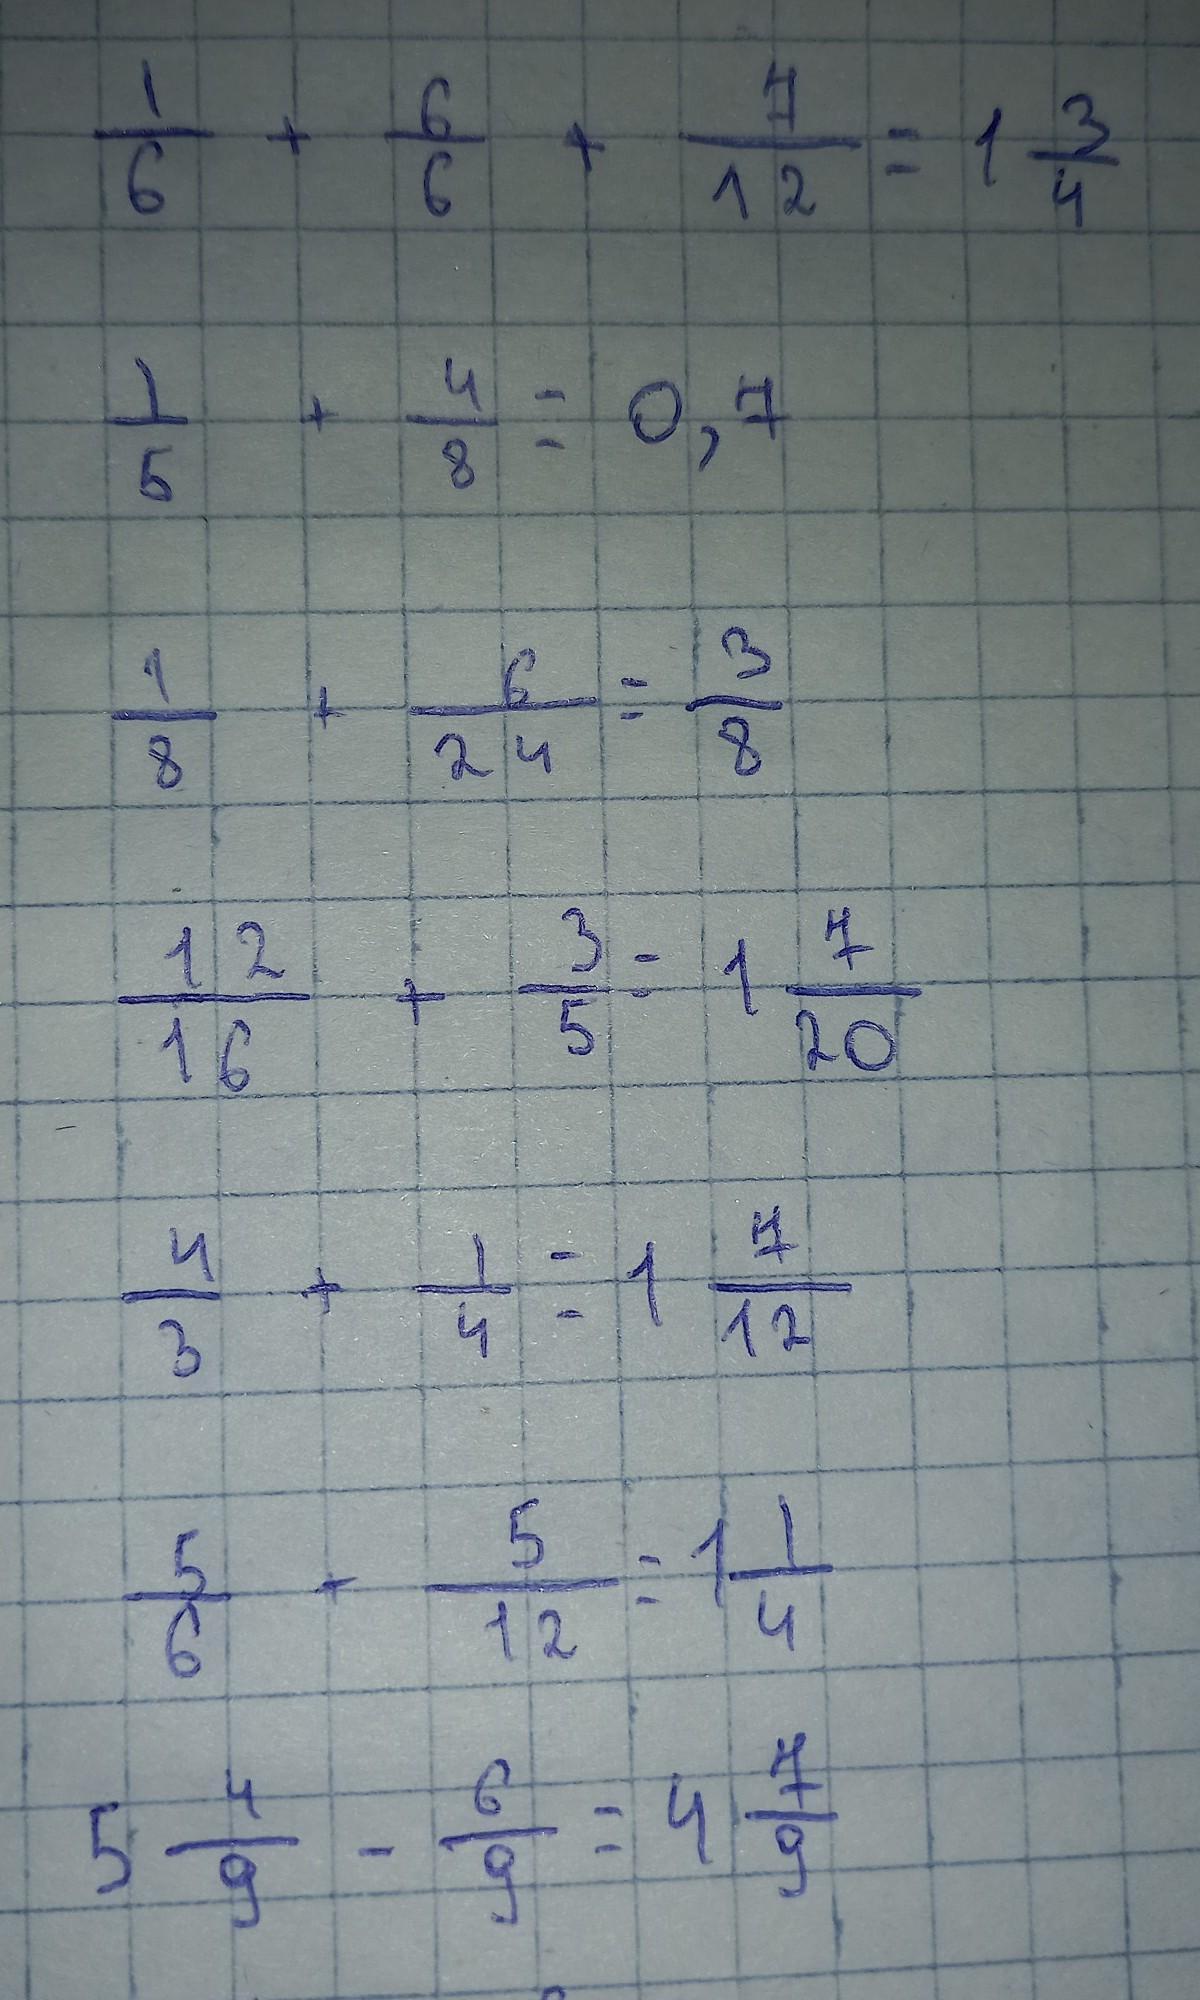 1/6 + 6/6 + 7/12 = 1 3/4
1/5 + 4/8 = 0,7
1/8 + 6/24 = 3/8
12/16 + 3/5 = 1 7/20
4/3 + 1/4 = 1 7/12
5/6 + 5/12 = 1 1/4
5 4/9 - 6/9 = 4 7/9